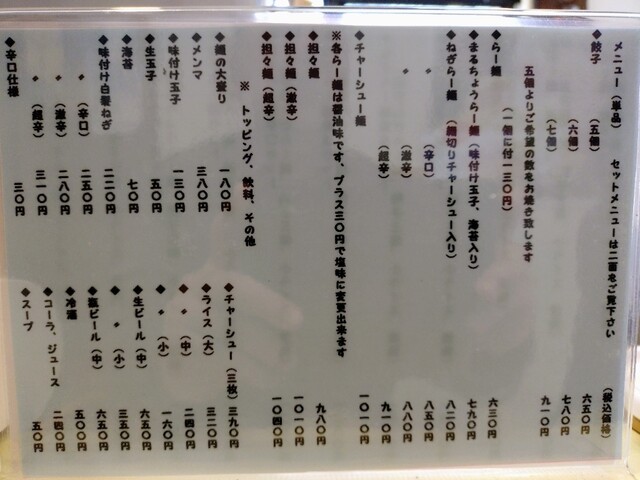 メニュー（単品）　セットメニューは二面をご覧下さい　（税込価格）
◆餃子　（五個）　六五〇円
（六個）　七八〇円
（七個）　九一〇円
五個よりご希望の数をお焼き致します
（一個に付一三〇円）
◆らー麺　六三〇円
◆まるちょうらー麺（味付け玉子、海苔入り）　七九〇円
◆ねぎらー麺（細切りチャーシュー入り）　八二〇円
〃　（辛口）　八五〇円
〃　（激辛）　八八〇円
（超辛）　九一〇円
◆チャーシュー麺　一〇一〇円
※各らー麺は醤油味です、プラス三〇円で塩味に変更出来ます
◆担々麺　九八〇円
◆担々麺（激辛）　一〇一〇円
◆担々麺（超辛）　一〇四〇円
※　トッピング、飲料、その他
◆麺の大盛り　一八〇円
◆メンマ　三八〇円
◆味付け玉子　一三〇円
◆生玉子　五〇円
◆海苔　七〇円
◆味付け白髪ねぎ　二二〇円
〃　（辛口）　二五〇円
〃　（激辛）　二八〇円
〃　（超辛）　三一〇円
◆辛口仕様　三〇円
◆チャーシュー（三枚）　三九〇円
◆ライス（大）　三二〇円
◆　〃　（中）　二四〇円
◆　〃　（小）　一六〇円
◆生ビール（中）　六五〇円
◆　〃　（小）　三五〇円
◆瓶ビール（中）　六五〇円
◆冷酒　五〇〇円
◆コーラ、ジュース　二四〇円
◆スープ　五〇円